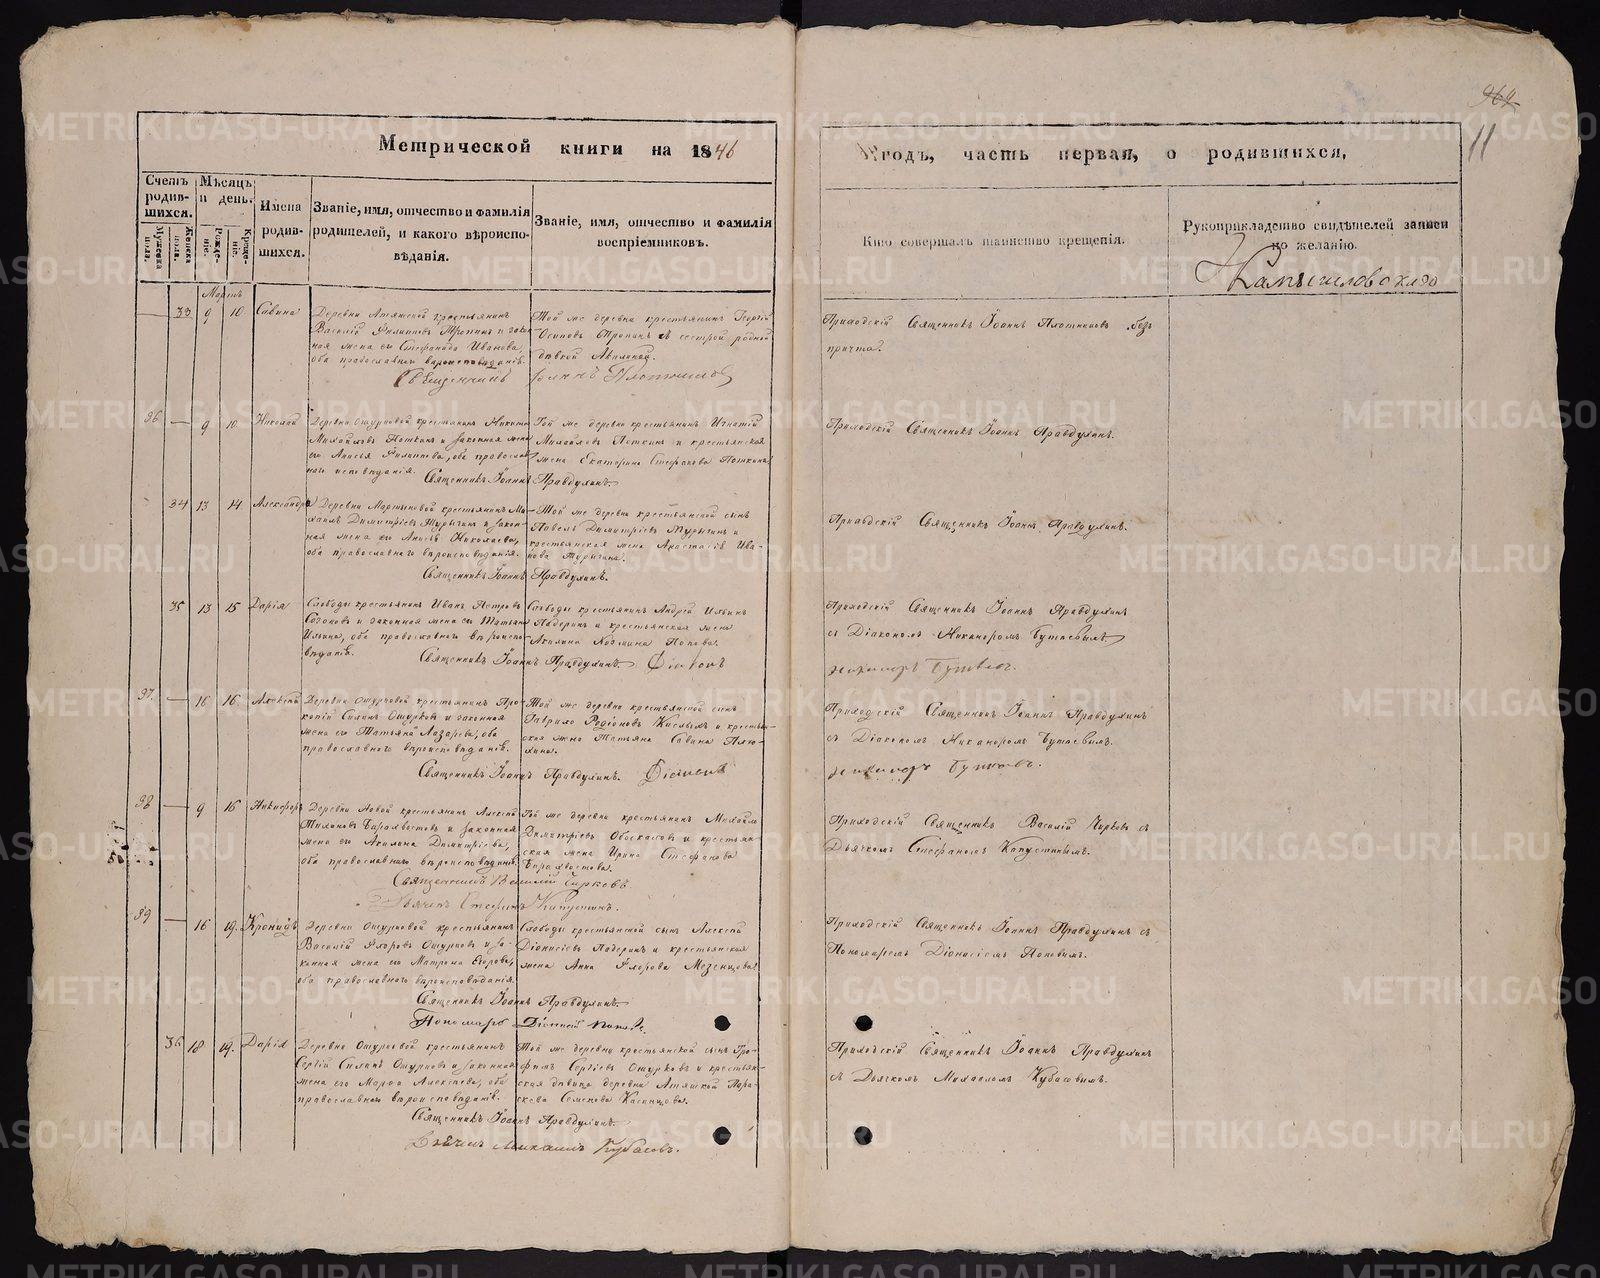 964
11
Метрической книги на 1846
годъ, часть первая, о родившихся,
Счетъ родившихся.
Мужеска пола.
Женска пола.
Мѣсяцъ и день.
Рожденіе.
Крещеніе.
Имена родившихся.
Званіе, имя, отчество и фамилія родителей, и какого вѣроисповѣданія.
Званіе, имя, отчество и фамилія воспріемниковъ.
Кто совершалъ таинство крещенія.
Рукоприкладство свидѣтелей записи по желанію.
Камышловскаго
Мартъ
33 9 10 Савина
Деревни крестьянинъ
Василій Филиповъ Тропинъ и закон-
ная жена его Стефанида Иванова,
оба православнаго вѣроисповѣданія.
Той же деревни крестьянинъ Георгій
Осиповъ Тропинъ сестрой родной
дѣвкой Акилиной.
Приходскій Священникъ Іоаннъ Плотниковъ безъ
причта.
Священникъ Іоаннъ Плотниковъ
36 — 9 10 Николай
Деревни Ошурковой крестьянинъ Никита
Михайловъ Поткинъ и законная жена
его Анисья Филиппова, оба православ-
наго исповѣданія.
Той же деревни крестьянинъ Игнатій
Михайловъ Поткинъ и крестьянская
жена Екатерина Стефанова Поткина
Приходскій Священникъ Іоаннъ Правдухинъ.
Священникъ Іоаннъ Правдухинъ.
34 13 14 Александра
Деревни Мартыновой крестьянинъ Ми-
хаилъ Димитріевъ Турыгинъ и закон-
ная жена его Анисья Николаева,
оба православнаго вѣроисповѣданія.
Той же деревни крестьянской сынъ
Павелъ Димитріевъ Турыгинъ и
крестьянская жена Анастасія Ива-
нова Турыгина.
Приходскій Священникъ Іоаннъ Правдухинъ.
Священникъ Іоаннъ Правдухинъ.
35 13 15 Дарія
Слободы крестьянинъ Иванъ Петровъ
Созоновъ и законная жена его Татьяна
Ильина, оба православнаго вѣроиспо-
вѣданія.
Слободы крестьянинъ Андрей Ильинъ
Падеринъ и крестьянская жена
Акилина Козмина Попова.
Приходскій Священникъ Іоаннъ Правдухинъ
съ Діакономъ Никаноромъ Бутаевымъ
Священникъ Іоаннъ Правдухинъ. Діаконъ
Никаноръ Бутаевъ.
37. — 16 16 Алексѣй
Деревни Ошурковой крестьянинъ Про-
копій Силинъ Ошурковъ и законная
жена его Татьяна Лазарева, оба
православнаго вѣроисповѣданія.
Той же деревни крестьянской сынъ
Гаврило Родіоновъ Кислыхъ и крестьян-
ская жена Татьяна Савина
Приходскій Священникъ Іоаннъ Правдухинъ
съ Діакономъ Никаноромъ Бутаевымъ.
Священникъ Іоаннъ Правдухинъ. Діаконъ
Никаноръ Бутаевъ.
38 — 9 16 Никифоръ
Деревни Новой крестьянинъ Алексѣй
Тихоновъ и законная
жена его Акилина Димитріева,
оба православнаго вѣроисповѣданія.
Той же деревни крестьянинъ Михайло
Димитріевъ Обоскаловъ и крестьян-
ская жена Ирина Стефанова
Приходскій Священникъ Василій Чирковъ съ
Дьячкомъ Стефаномъ Капустинымъ.
Священникъ Василій Чирковъ.
Дьячекъ Стефанъ Капустинъ.
39 — 16 19. Кронидъ
Деревни Ошурковой крестьянинъ
Василій Флоровъ Ошурковъ и за-
конная жена его Матрона Егорова,
оба православнаго вѣроисповѣданія
Слободы крестьянской сынъ Алексѣй
Діонисіевъ Падеринъ и крестьянская
жена Анна Флорова Мезенцова
Приходскій Священникъ Іоаннъ Правдухинъ съ
Пономаремъ Діонисіемъ Поповымъ.
Священникъ Іоаннъ Правдухинъ.
Пономарь Діонисій Поповъ.
36 18 19. Дарія
Деревни Ошурковой крестьянинъ
Сергій Силинъ Ошурковъ и законная
жена его Марфа Алексѣева, оба
православнаго вѣроисповѣданія.
Той же деревни крестьянской сынъ Тро-
фимъ Сергіевъ Ошурковъ и крестьян-
ская дѣвица деревни Пара-
скева Семенова
Приходскій Священникъ Іоаннъ Правдухинъ
съ Дьячкомъ Михаиломъ Кубасовымъ.
Священникъ Іоаннъ Правдухинъ.
Дьячекъ Михаилъ Кубасовъ.
METRIKI.GASO-URAL.RU